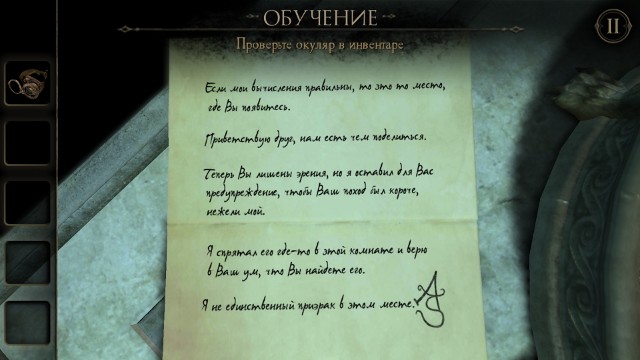 ОБУЧЕНИЕ
II
Проверьте окуляр в инвентаре
Если мои вычисления правильны, то это то место,
где Вы появитесь.
Приветствую друг, нам есть чем поделиться.
Теперь Вы лишены зрения, но я оставил для Вас
предупреждение, чтобы Ваш поход был короче,
нежели мой.
Я спрятал его где-то в этой комнате и верю
в Ваш ум, что Вы найдете его.
Я не единственный призрак в этом месте.